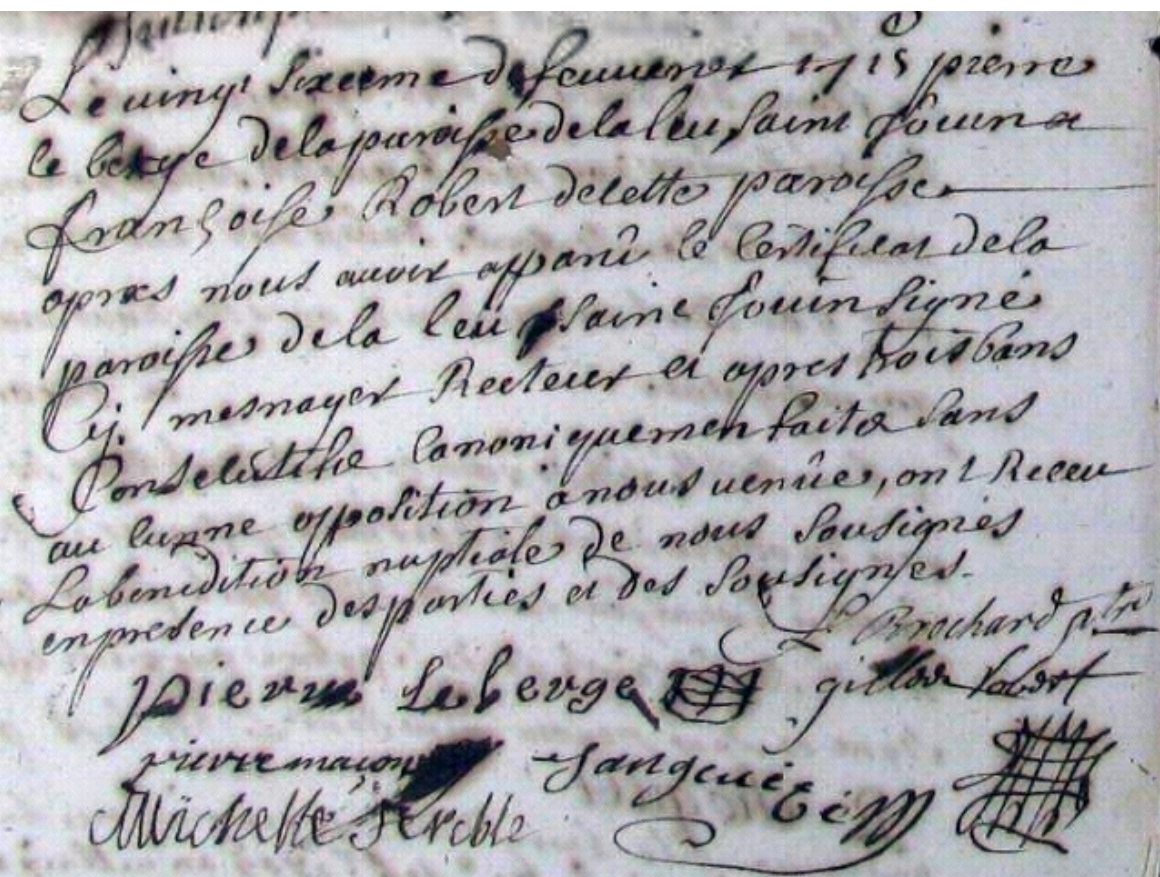 Le vingt sixieme de fevuerier 1715 pierre
le berge de la paroisse de la leu saint Jouin &
françoise Robert de cette paroisse
apres nous avoir apparû le Certificat de la
paroisse de la leu saint Jouin signé
mesnager Recteur et apres trois bans
Consecutive Canoniquemen faite sans
au cunne opposition a nous venûe, ont Receu
La benedition nuptiale de nous sousignés
en presence des parties et des sousignes.
Brochard ptre
pierre Le berge gilles Robert
pierre maçon
Michelle